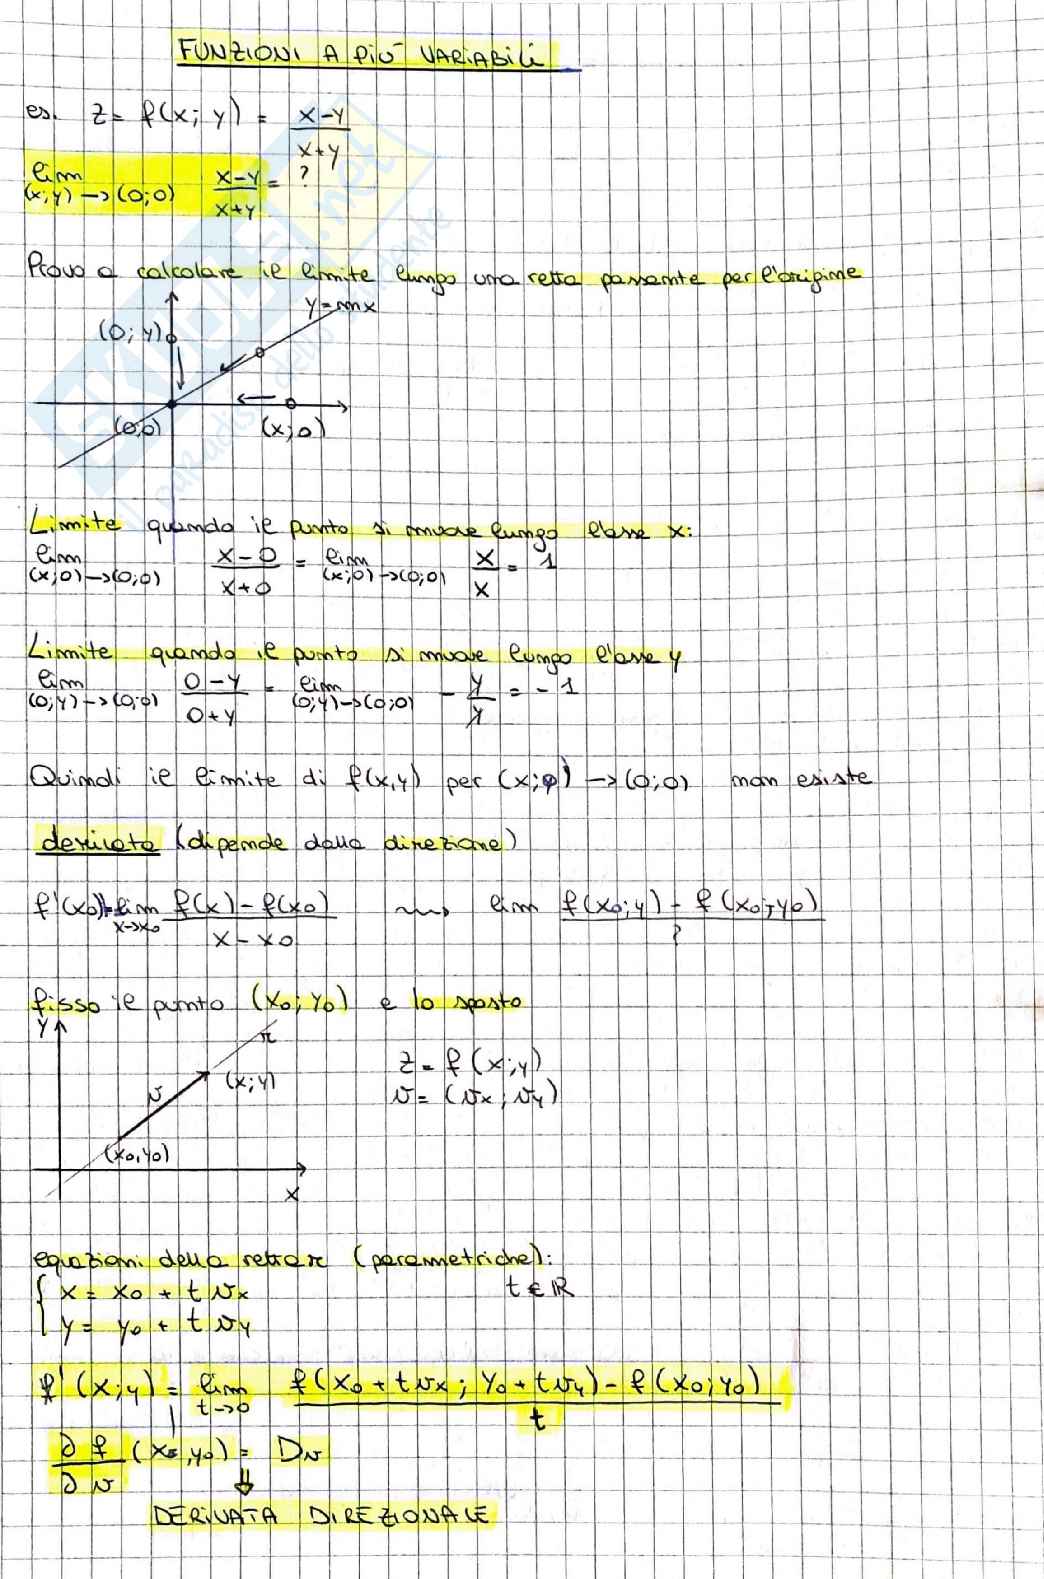 FUNZIONI A PIÙ VARIABILI
es. z = f(x; y) = x-y / x+y
lim (x;y) -> (0;0) x-y / x+y = ?
Provo a calcolare il limite lungo una retta passante per l'origine
y=mx
(0; y)
(0;0) (x; 0)
Limite quando il punto si muove lungo l'asse x:
lim (x;0)->(0;0) x-0 / x+0 = lim (x;0)->(0;0) x / x = 1
Limite quando il punto si muove lungo l'asse y
lim (0;y)->(0;0) 0-y / 0+y = lim (0;y)->(0;0) - y / y = -1
Quindi il limite di f(x,y) per (x;y) -> (0;0) non esiste
derivata (dipende dalla direzione)
f'(x0) = lim x->x0 f(x) - f(x0) / x - x0 ⟿ lim f(x0;y) - f(x0;y0) / ?
fisso il punto (x0; y0) e lo sposto
y
r
v (x;y)
(x0,y0)
x
z = f(x;y)
v = (vx; vy)
equazioni della retta r (parametriche):
{ x = x0 + t vx t ∈ R
y = y0 + t vy
f'(x;y) = lim t->0 f(x0 + t vx; y0 + t vy) - f(x0;y0) / t
∂f / ∂v (x0,y0) = Dv
⇓
DERIVATA DIREZIONALE
SKUOLA.net
il paradiso dello studente